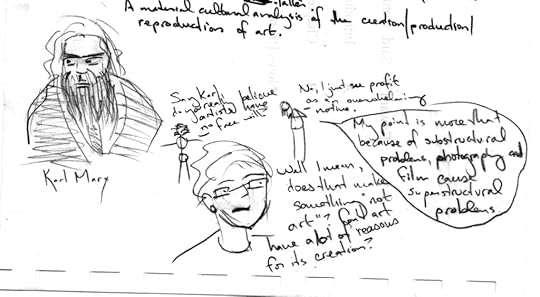 A material cultural analysis of the creation/production/
reproduction of art.
Karl Marx
Say Karl,
do you really believe
artists have
no free will?
No, I just see profit
as an overwhelming
motive.
Well I mean,
does that make
something "not
art"? Can't art
have a lot of reasons
for its creation?
My point is more that
because of substructural
problems, photography and
film cause
superstructural
problems